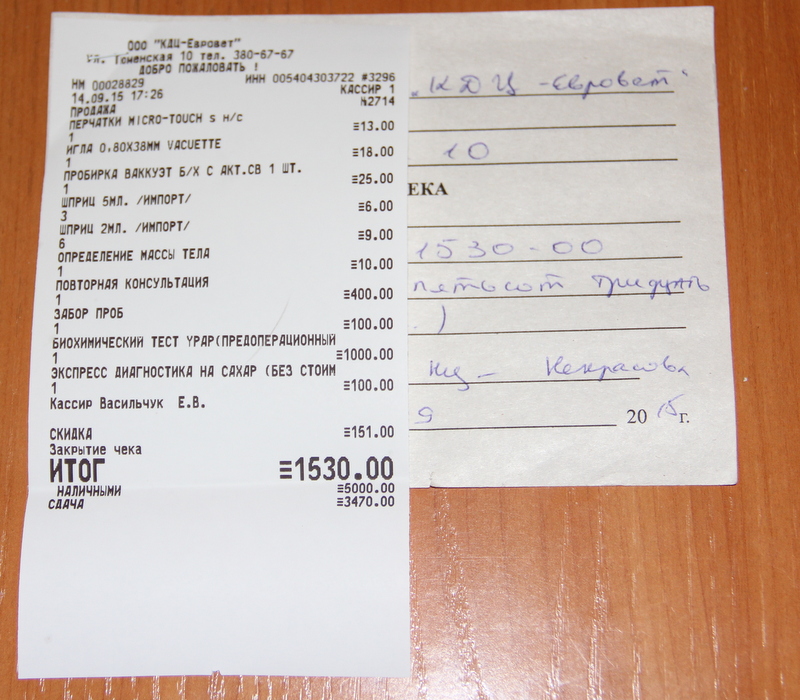 ООО "КДЦ-Евровет"
ул. Тюменская 10 тел. 380-67-67
ДОБРО ПОЖАЛОВАТЬ !
НМ 00028829 ИНН 005404303722 #3296
14.09.15 17:26 КАССИР 1
ПРОДАЖА №2714
ПЕРЧАТКИ MICRO-TOUCH S Н/С
1 ≡13.00
ИГЛА 0,80X38ММ VACUETTE
1 ≡18.00
ПРОБИРКА ВАККУЭТ Б/Х С АКТ.СВ 1 ШТ.
1 ≡25.00
ШПРИЦ 5МЛ. /ИМПОРТ/
3 ≡6.00
ШПРИЦ 2МЛ. /ИМПОРТ/
6 ≡9.00
ОПРЕДЕЛЕНИЕ МАССЫ ТЕЛА
1 ≡10.00
ПОВТОРНАЯ КОНСУЛЬТАЦИЯ
1 ≡400.00
ЗАБОР ПРОБ
1 ≡100.00
БИОХИМИЧЕСКИЙ ТЕСТ YPAP(ПРЕДОПЕРАЦИОННЫЙ
1 ≡1000.00
ЭКСПРЕСС ДИАГНОСТИКА НА САХАР (БЕЗ СТОИМ
1 ≡100.00
Кассир Васильчук Е.В.
СКИДКА ≡151.00
Закрытие чека
ИТОГ ≡1530.00
НАЛИЧНЫМИ ≡5000.00
СДАЧА ≡3470.00
"КДЦ-Евровет"
10
ЕКА
1530-00
пятьсот тридцать
)
Некрасова
9 2015г.